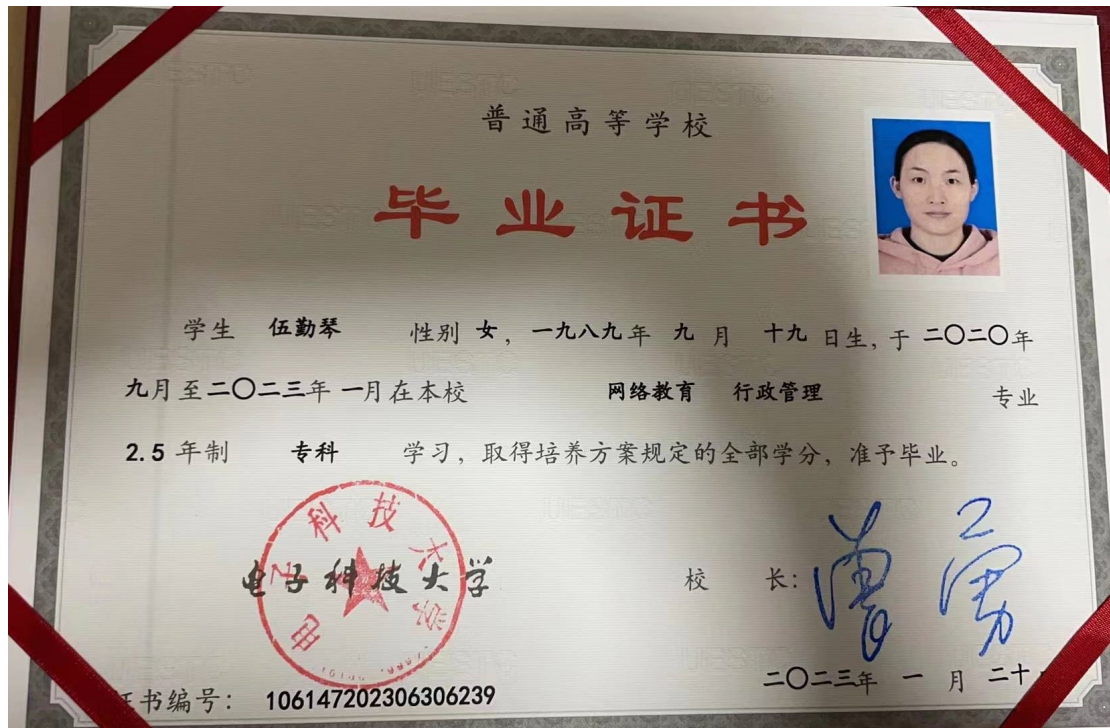 普通高等学校
毕业证书
学生 伍勤琴 性别 女，一九八九年 九 月 十九 日生，于 二〇二〇年
九月至二〇二三年 一月在本校 网络教育 行政管理 专业
2.5 年制 专科 学习，取得培养方案规定的全部学分，准予毕业。
电子科技大学
电子科技大学
校 长：曾勇
二〇二三年 一 月 二十
证书编号： 106147202306306239